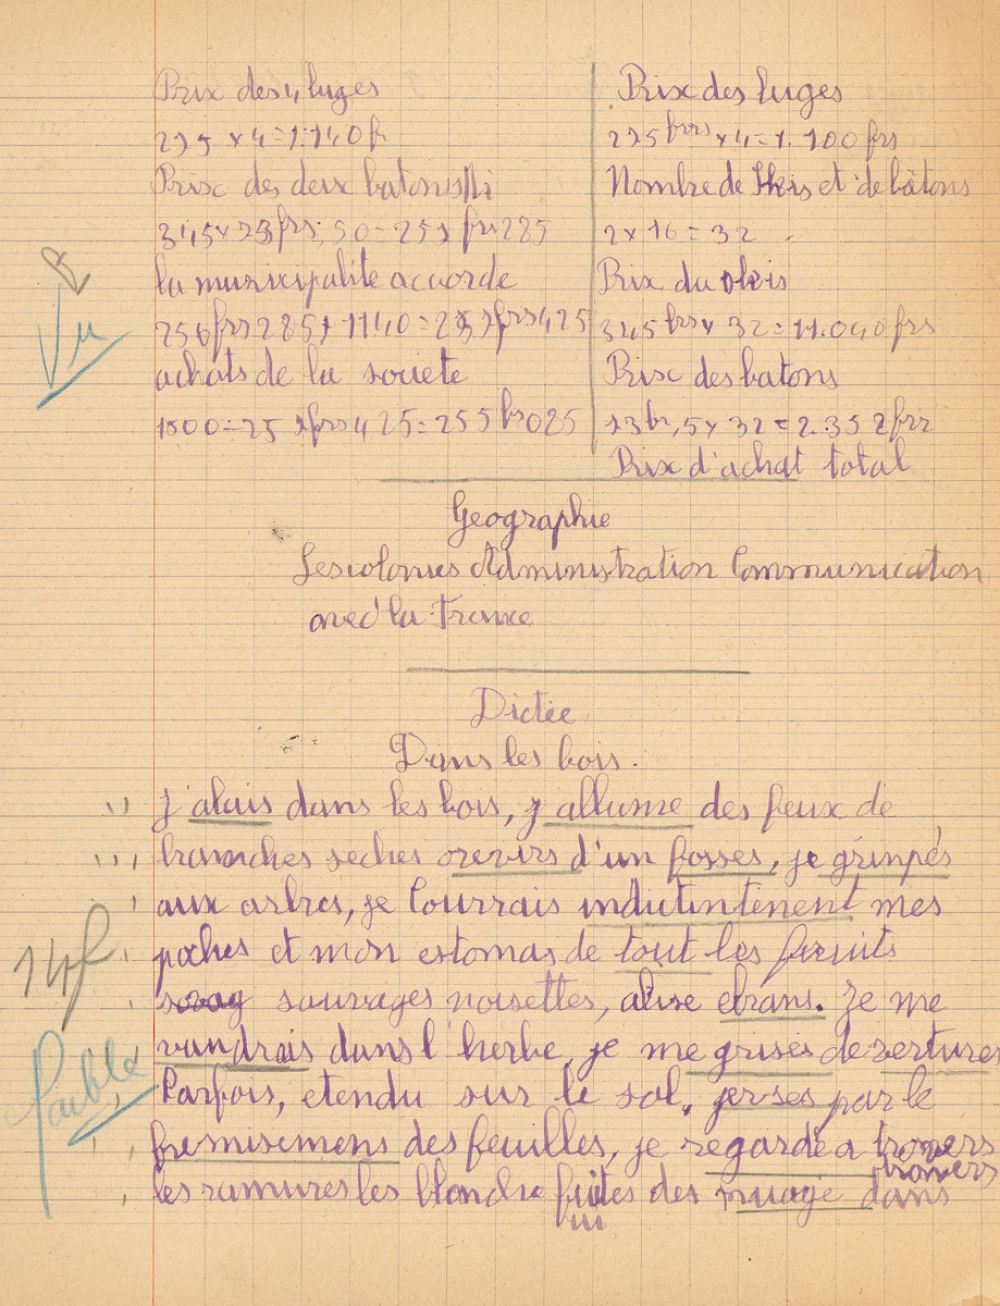 Prix des 4 luges
275 x 4 = 1.140 fr
Prix des deux batons
345 x 73 frs, 50 = 257 frs 285
la municipalite accorde
256 frs 285 + 1140 = 257 frs 425
achats de la societe
1500 = 25 frs 425 = 255 fr 025
Prix des luges
275 frs x 4 = 1.100 frs
Nombre de skis et de bâtons
2 x 16 = 32
Prix du skis
345 frs x 32 = 11.040 frs
Prix des batons
73 fr,5 x 32 = 2.352 frs
Prix d'achat total
Vu
Geographie
Les colonies Administration Communication
avec la France
Dictée
Dans les bois.
j'alais dans les bois, j'allume des feux de
branches seches orevirs d'un fosses, je grimpés
aux arbres, je bourrais indictintenent mes
poches et mon estomas de tout les fruits
sauvages noisettes, alise ebrans. Je me
vandrais dans l'herbe, je me grises de vertures
Parfois, etendu sur le sol, jerses par le
fremisemens des feuilles, je regarde a travers
travers
les ramures les blondre fuites des nuage dans
14 f
Faible